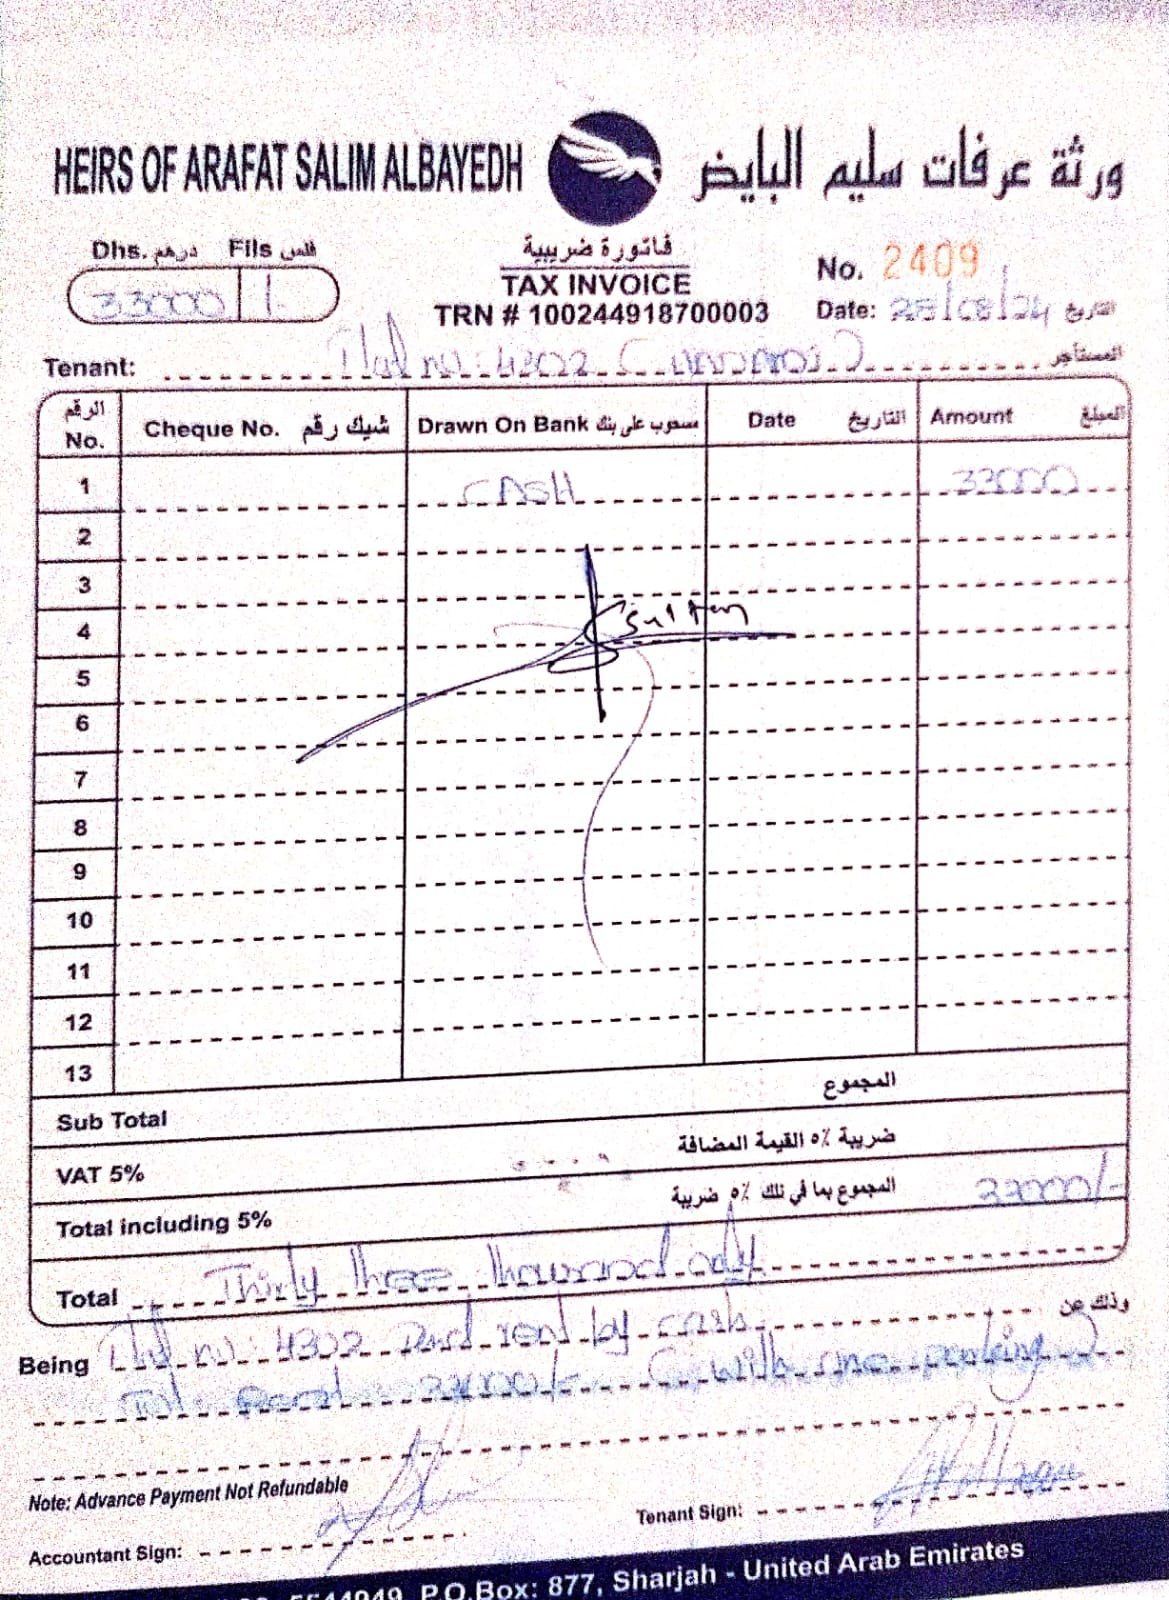 HEIRS OF ARAFAT SALIM ALBAYEDH
ورثة عرفات سليم البايض
Dhs. درهم Fils فلس
33000 /-
فاتورة ضريبية
TAX INVOICE
TRN # 100244918700003
No. 2409
Date: /08/24 التاريخ
Tenant: Flat no: 4302 المستأجر
الرقم No. Cheque No. شيك رقم Drawn On Bank مسحوب على بنك Date التاريخ Amount المبلغ
1 CASH 33000
2
3
4 Sultan
5
6
7
8
9
10
11
12
13
Sub Total المجموع
VAT 5% ضريبة ٥٪ القيمة المضافة
Total including 5% المجموع بما في ذلك ٥٪ ضريبة 33000/-
Total Thirty three thousand only
Being Flat no: 4302 rent by cash وذلك عن
33000/- with one parking
Note: Advance Payment Not Refundable
Accountant Sign:
Tenant Sign:
5544949, P.O.Box: 877, Sharjah - United Arab Emirates